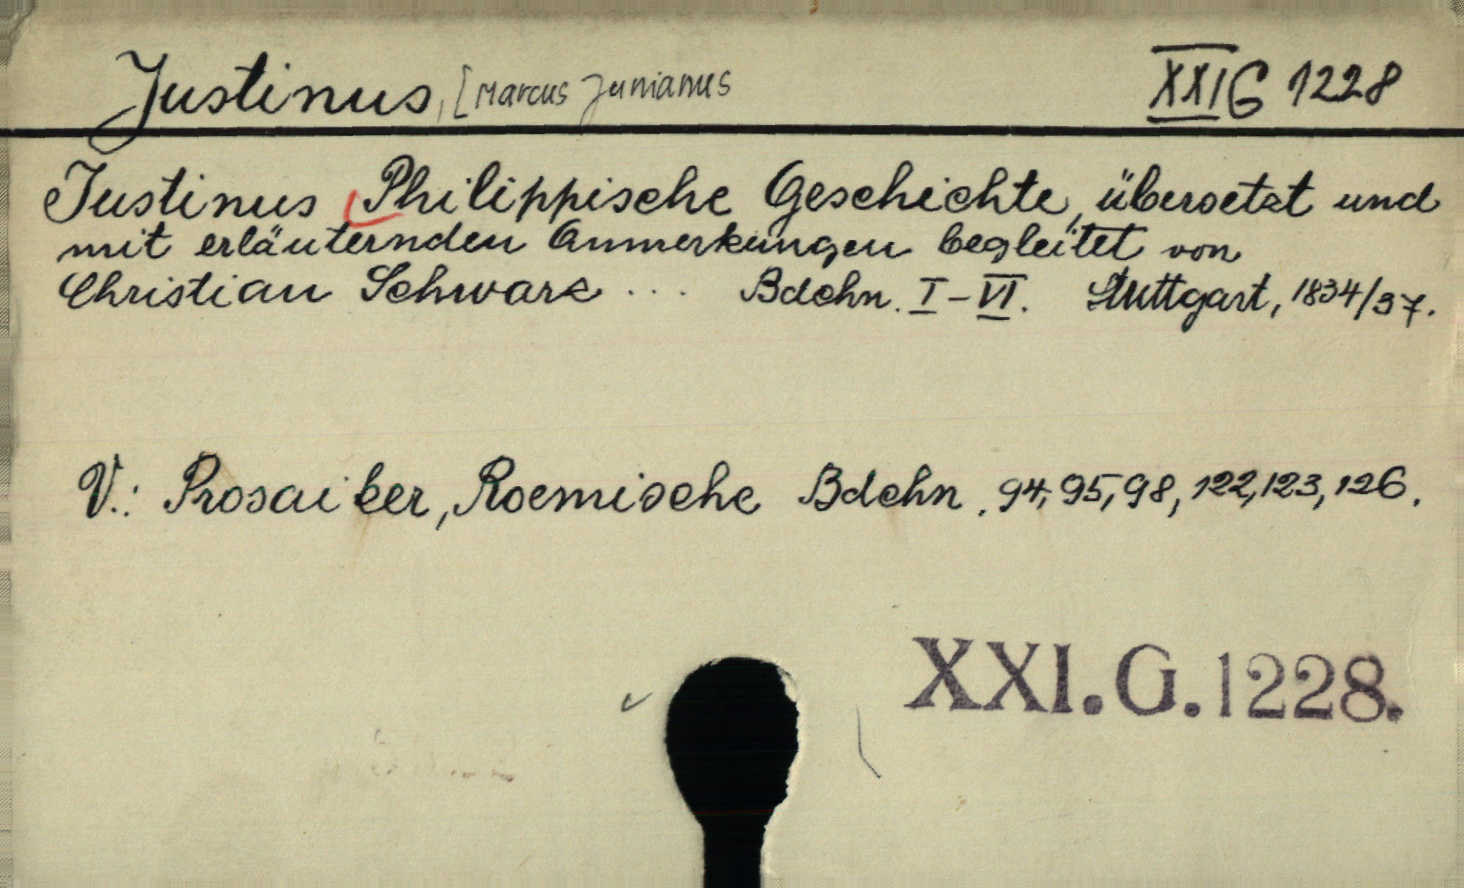 Justinus, [Marcus Junianus XXI G 1228
Justinus Philippische Geschichte, übersetzt und
mit erläuternden Anmerkungen begleitet von
Christian Schwarz ... Bdchn. I-VI. Stuttgart, 1834/37.
V.: Prosaiker, Roemische Bdchn. 94, 95, 98, 122, 123, 126.
XXI.G.1228.